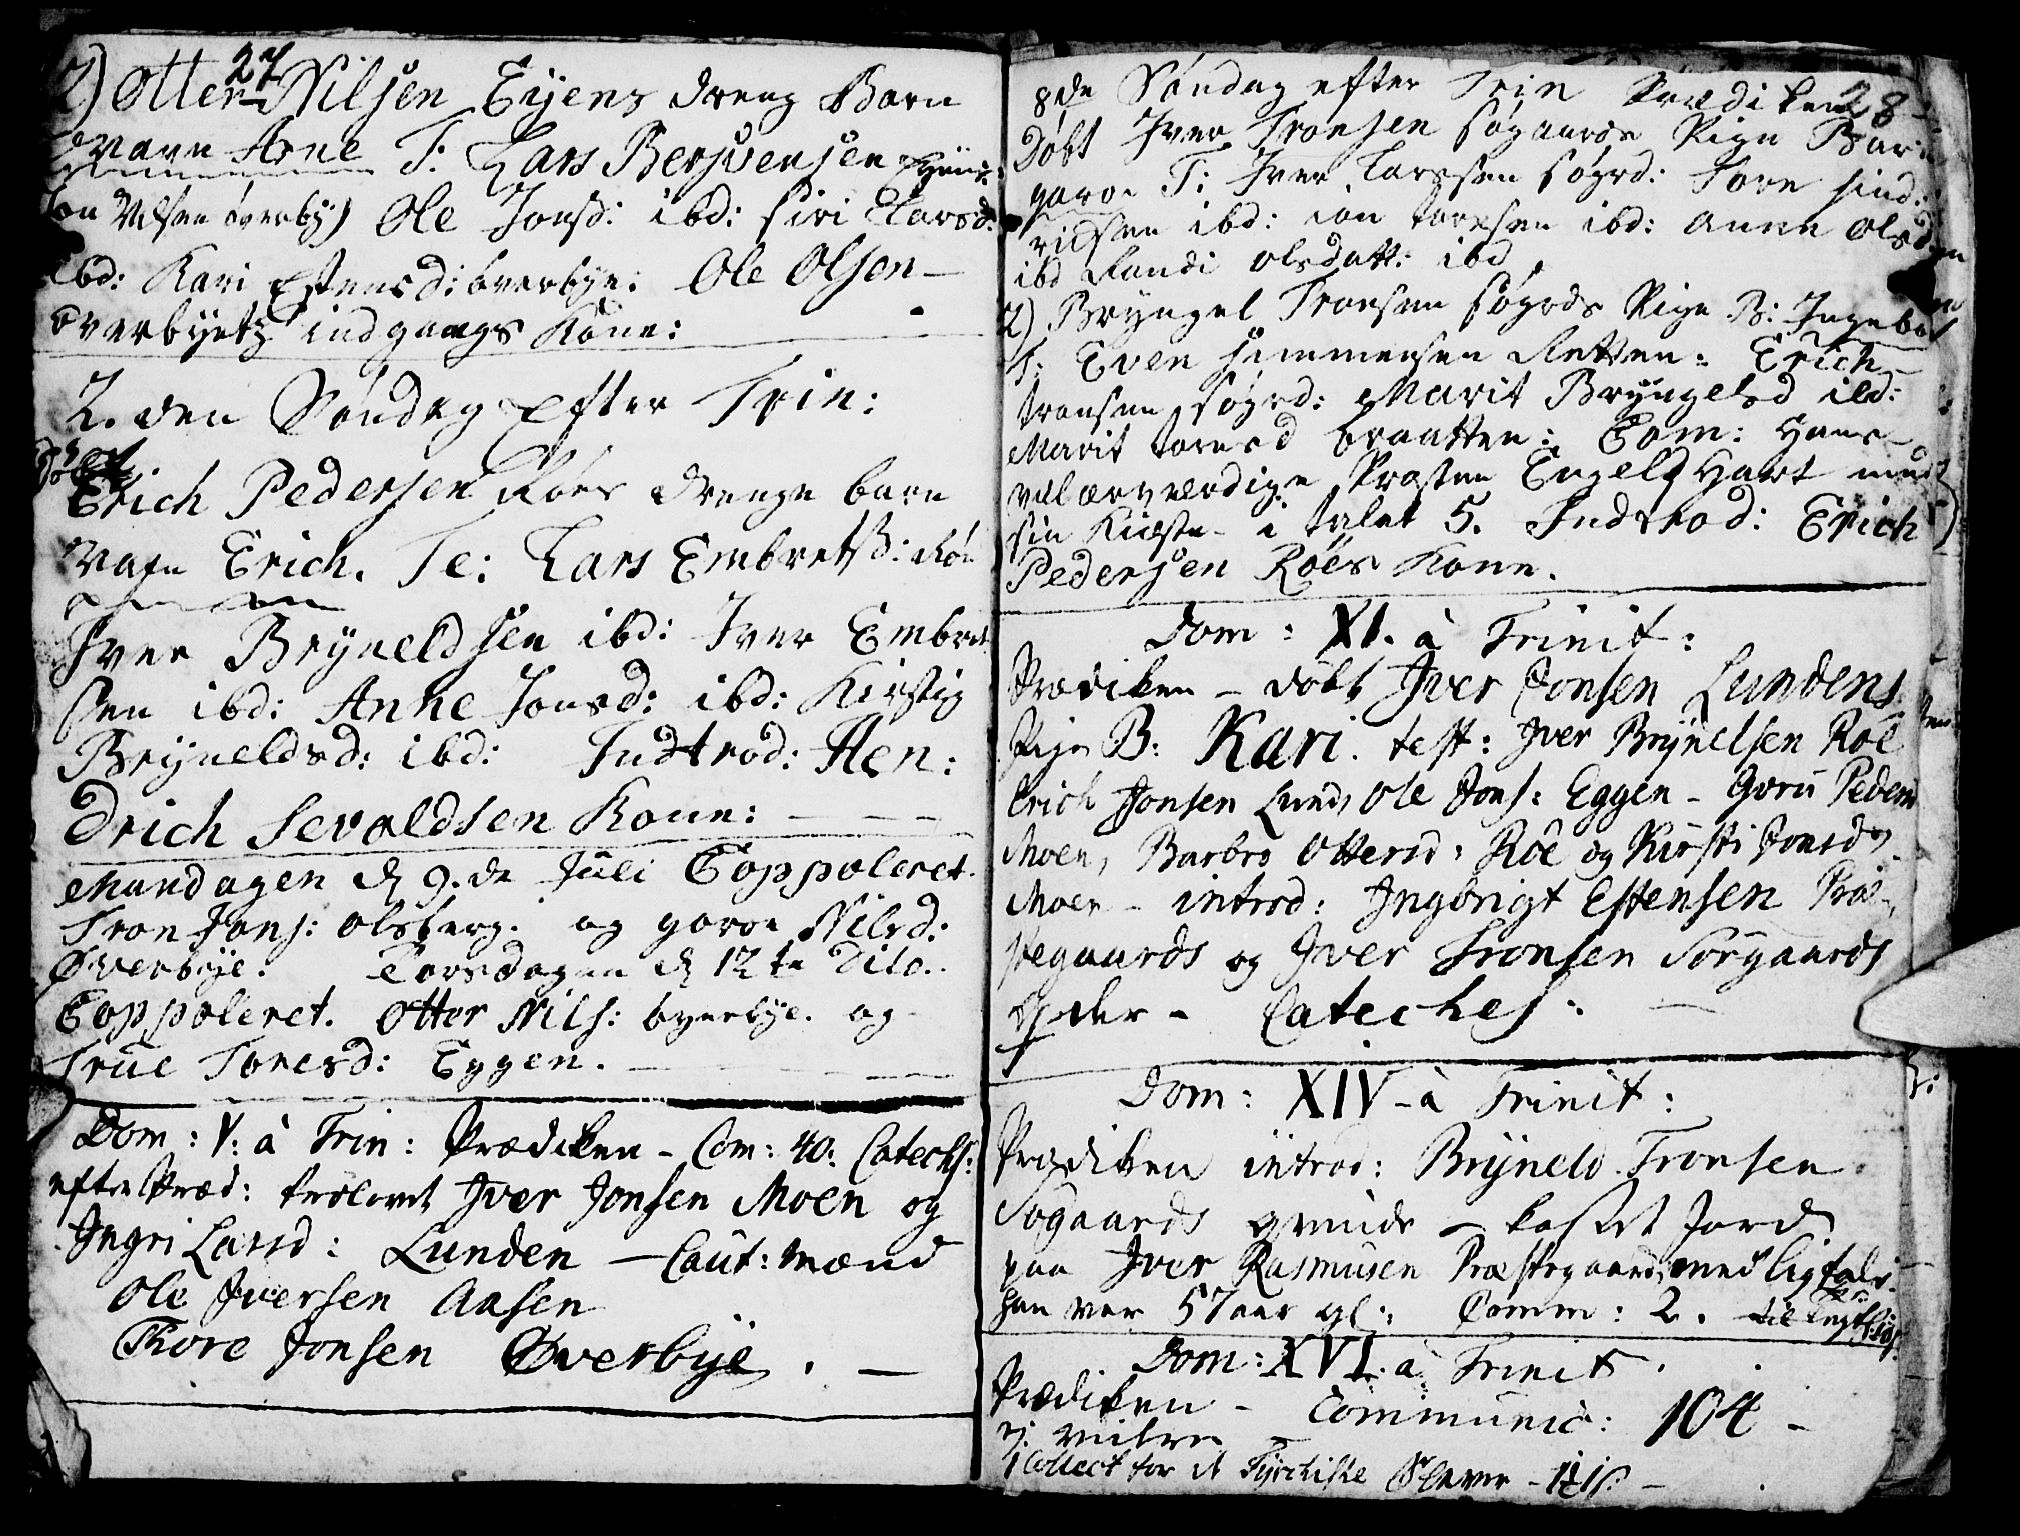 27
2) Otter Nilsen Eijens dreng Barn
Navn Arne T: Lars Bersvensen
Nilsen överbÿ) Ole Jonsd: ibd: siri Larsd:
ibd: Kari Estensd: överbÿe: Ole Olsen –
överbyets indgangs Kone:
2. den Söndag Efter Trin:
Döbt
Erich Pedersen Röes drenge barn
Nafn Erich. Te: Lars Embretsß: Rö
Iver Brÿneldsen ibd: Iver Embret
sen ibd: Anne Jonsd: ibd: Kirstig
Brÿneldsd: ibd: Indtrod: Hen:
drich Sevaldsen Kone: – – –
Mandagen d 9. de Juli Coppoleret.
Tron Jons: olsberg. og goroe Nilsd:
Överbÿe. Torsdagen d 12te Dito.
Coppoleret. Otter Nils: överbÿe. og
True Toresd: Eggen.
Dom: V: à Trin: Prædiken – Com: 40: Catechs:
efter Præd: trolovet Iver Jonsen Moen og
Ingri Larsd: Lunden – Caut: Mænd
Ole Iversen Aasen
Thore Jonsen Øverbÿe. –
28
8de Söndag efter Trin Prædiken
Döbt Iver Tronsen Sögaards Pige Barn
goroe T: Iver Larssen Sögrd: Tore hind:
richsen ibd: Jon Toresen ibd: Anne Olsd
ibd Randi olsdatt: ibd
2) Brÿngel Tronsen Sögrds Pige B: Ingebor
T: Even Simmensen Retten: Erich
Tronsen Sögrd: Marit Brÿngelsd ibd:
Marit Toresd braatten: Com: Hans
vel ærværdige Prosten Engelhart med
sin Kiæste – i talet 5. Indtrod: Erich
Pedersen Röes Kone.
Dom: XI. à Trinit:
Prædiken – döbt Iver Jonsen Lundens
Pige B: Kari. test: Iver Brÿnelsen Roe
Erich Jonsen Lund, Ole Jons: Eggen – Goru Peders
Moen, Barbro Ottersd: Röe og Kirsti Jonsd
Moen – introd: Ingbrigt Estensen Præ-
stegaards og Iver Tronsen Sörgaards
– Cateches: –
Dom: XIV – à Trinit:
Prædiken introd: Brÿneld Tronsen
Sögaards qvinde – kastet Jord
paa Iver Rasmusen Præstegaard, med Ligtale
han var 57 aar gl: Comm: 2.
Dom: XVI. à Trinit.
Prædiken – Communic: 104 –
Collect for de Tÿrchiske Slaver –